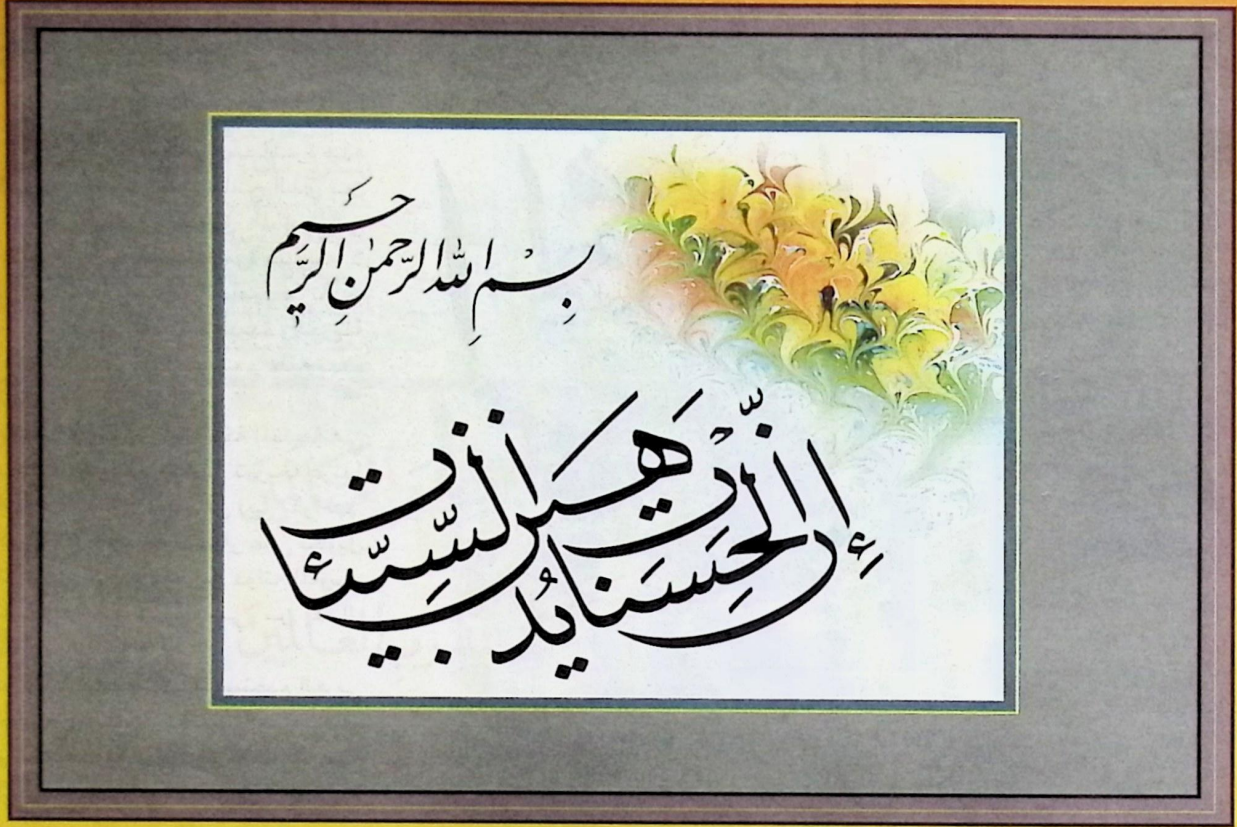 بِسْمِ اللّٰهِ الرَّحمٰنِ الرَّحَيمِ
إِنَّ الْحَسَنَاتِ يُذْهِبْنَ السَّيِّئَاتِ